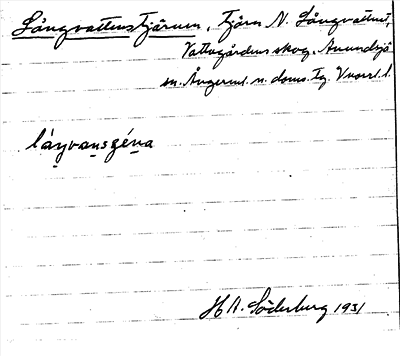 Långvattenstjärnen, Tjärn N. Långvattnet,
Vattagårdens skog, Anundsjö
sn. Ångerml. n. doms. Tg. Vnorrl. l.
låŋvaṇsɕéṇa
H A. Söderberg 1931